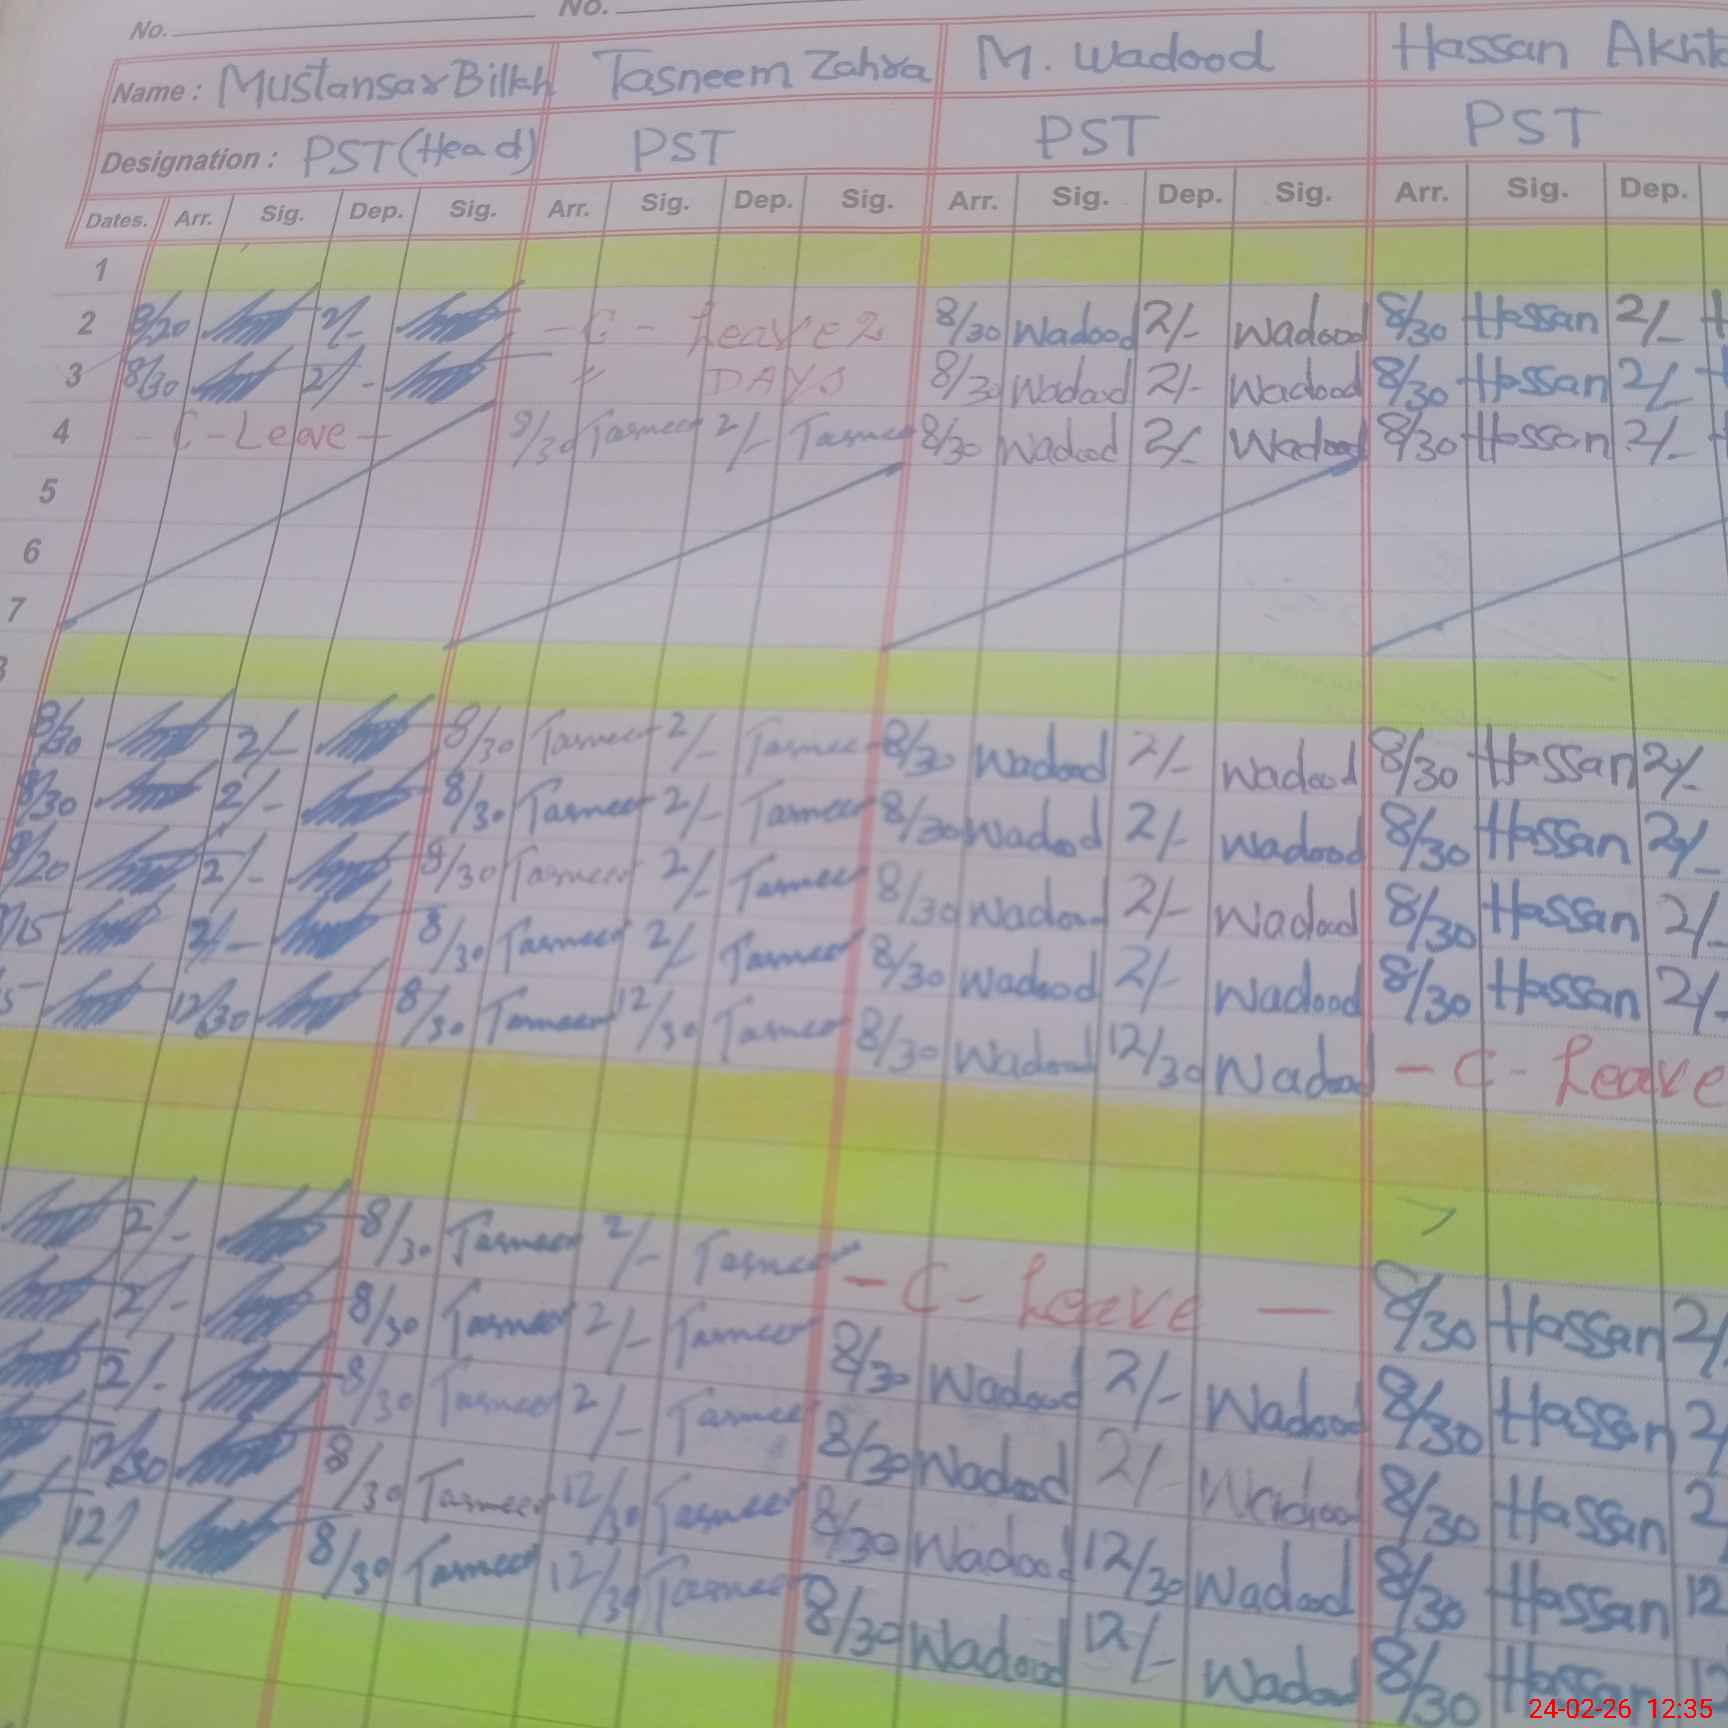 No. No.
Name : Mustansar Billah Tasneem Zahra M. Wadood Hassan
Designation : PST (Head) PST PST PST
Dates. Arr. Sig. Dep. Sig. Arr. Sig. Dep. Sig. Arr. Sig. Dep. Sig. Arr. Sig. Dep.
1
2 8/20 2/- - C - Leave 2 8/30 Wadood 2/- Wadood 8/30 Hassan 2/-
3 8/30 2/- " DAYS 8/30 Wadood 2/- Wadood 8/30 Hassan 2/-
4 - C - Leave - 8/30 Tasneem 2/- Tasneem 8/30 Wadood 2/- Wadood 8/30 Hassan 2/-
5
6
7
8/30 2/- 8/30 Tasneem 2/- Tasneem 8/30 Wadood 2/- Wadood 8/30 Hassan 2/-
8/30 2/- 8/30 Tasneem 2/- Tasneem 8/30 Wadood 2/- Wadood 8/30 Hassan 2/-
8/20 2/- 8/30 Tasneem 2/- Tasneem 8/30 Wadood 2/- Wadood 8/30 Hassan 2/-
2/- 8/30 Tasneem 2/- Tasneem 8/30 Wadood 2/- Wadood 8/30 Hassan 2/-
12/30 8/30 Tasneem 12/30 Tasneem 8/30 Wadood 12/30 Wadood - C - Leave
2/- 8/30 Tasneem 2/- Tasneem - C - Leave - 8/30 Hassan
2/- 8/30 Tasneem 2/- Tasneem 8/30 Wadood 2/- Wadood 8/30 Hassan
2/- 8/30 Tasneem 2/- Tasneem 8/30 Wadood 2/- Wadood 8/30 Hassan
12/30 8/30 Tasneem 12/30 Tasneem 8/30 Wadood 12/30 Wadood 8/30 Hassan 12
12/ 8/30 Tasneem 12/30 Tasneem 8/30 Wadood 12/- Wadood 8/30 Hassan
24-02-26 12:35